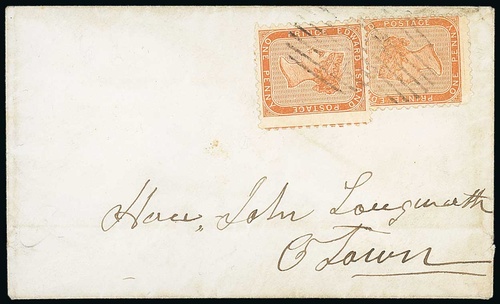 PRINCE EDWARD ISLAND
POSTAGE
ONE PENNY
POSTAGE
ONE PENNY
Hon. John Longworth
CTown